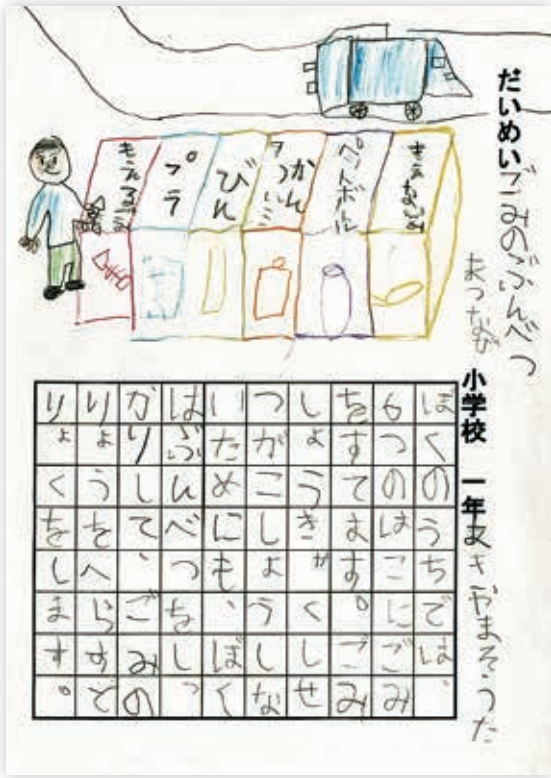 だいめい ごみのぶんべつ
小学校 一年 あきやまそうた
もえないごみ
かん
びん
プラ
もえるごみ
ぼくのうちでは、
6つのはこにごみ
をすてます。ごみ
しょうきゃくしせ
つがこしょうしな
いためにも、ぼく
はぶんべつをしっ
かりして、ごみの
りょうをへらすど
りょくをします。